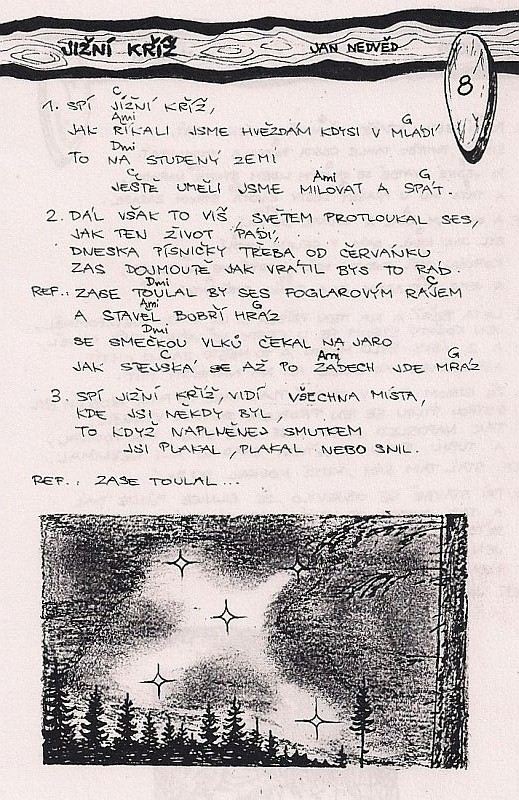 JIŽNÍ KŘÍŽ JAN NEDVĚD
8
C
1. SPÍ JIŽNÍ KŘÍŽ,
Ami G
JAK ŘÍKALI JSME HVĚZDÁM KDYSI V MLÁDÍ
Dmi
TO NA STUDENÝ ZEMI
C Ami G
JEŠTĚ UMĚLI JSME MILOVAT A SPÁT.
2. DÁL VŠAK TO VÍŠ, SVĚTEM PROTLOUKAL SES,
JAK TEN ŽIVOT PÁDÍ,
DNESKA PÍSNIČKY TŘEBA OD ČERVÁNKU
ZAS DOJMOUTĚ JAK VRÁTIL BYS TO RÁD.
Dmi C
REF.: ZASE TOULAL BY SES FOGLAROVÝM RÁJEM
Ami G
A STAVĚL BOBŘÍ HRÁZ
Dmi
SE SMEČKOU VLKŮ ČEKAL NA JARO
C Ami G
JAK STEJSKÁ SE AŽ PO ZÁDECH JDE MRÁZ
3. SPÍ JIŽNÍ KŘÍŽ, VIDÍ VŠECHNA MÍSTA,
KDE JSI NĚKDY BYL,
TO KDYŽ NAPLNĚNEJ SMUTKEM
JSI PLAKAL, PLAKAL NEBO SNIL.
REF.: ZASE TOULAL...